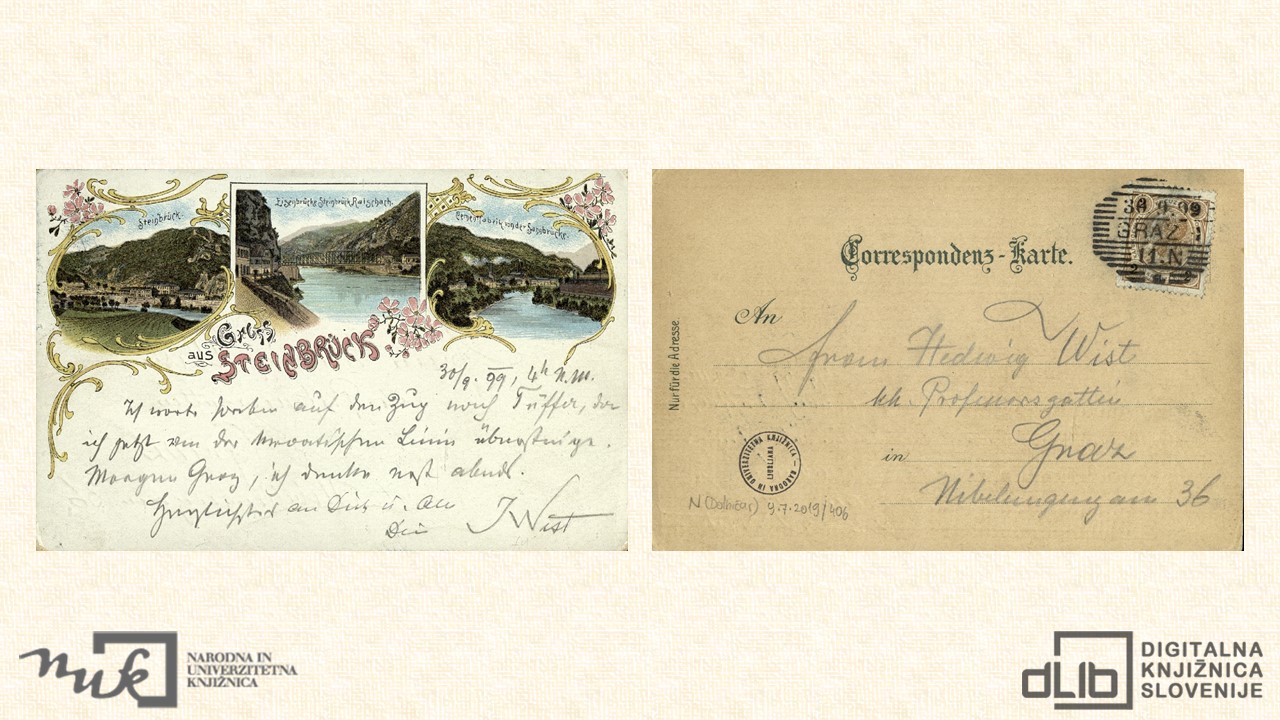 Steinbrück.
Eisenbrücke Steinbrück Ratschach.
Cementfabrik von der Sannbrücke.
Gruss
aus STEINBRÜCK
30/9. 99, 4h N.M.
Ich warte soeben auf den Zug nach Tüffer, da
ich jetzt von der kroatischen Linie übersteige.
Morgen Graz, ich denke erst abend.
Herzlichst an Dich u. alle
Dein J Wist
Correspondenz-Karte.
An
Frau Hedwig Wist
k.k. Professorsgattin
in Graz
Nibelungengasse 36
Nur für die Adresse.
30 9.99
GRAZ 1
11.N
NARODNA IN UNIVERZITETNA KNJIŽNICA
LJUBLJANA
N (Dolničar) 9.7.2019/406
nuk
NARODNA IN
UNIVERZITETNA
KNJIŽNICA
dLib
DIGITALNA
KNJIŽNICA
SLOVENIJE